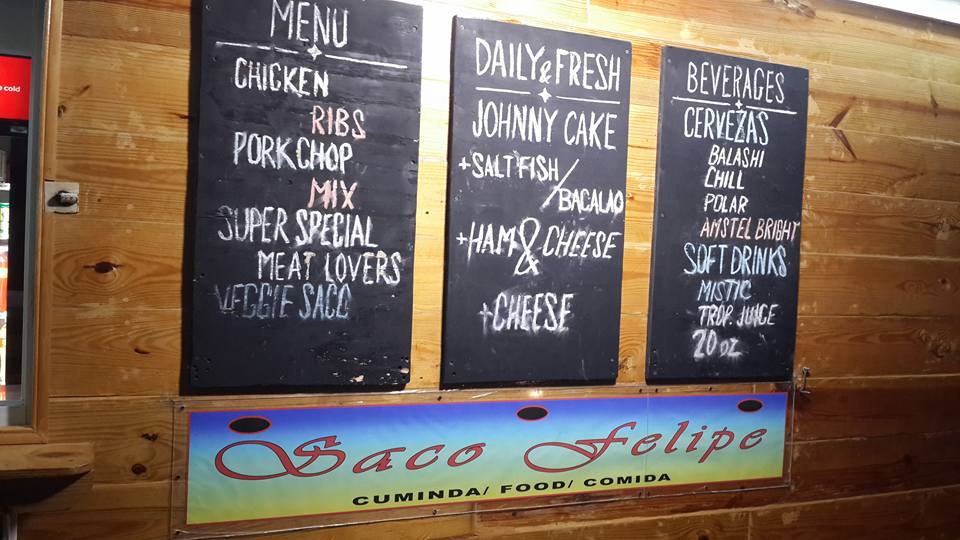 MENU
CHICKEN
RIBS
PORKCHOP
MIX
SUPER SPECIAL
MEAT LOVERS
VEGGIE SACO
DAILY & FRESH
JOHNNY CAKE
+SALT FISH/
BACALAO
+HAM & CHEESE
+CHEESE
BEVERAGES
CERVEZAS
BALASHI
CHILL
POLAR
AMSTEL BRIGHT
SOFT DRINKS
MISTIC
TROP. JUICE
20 oz
Saco Felipe
CUMINDA/ FOOD/ COMIDA
cold